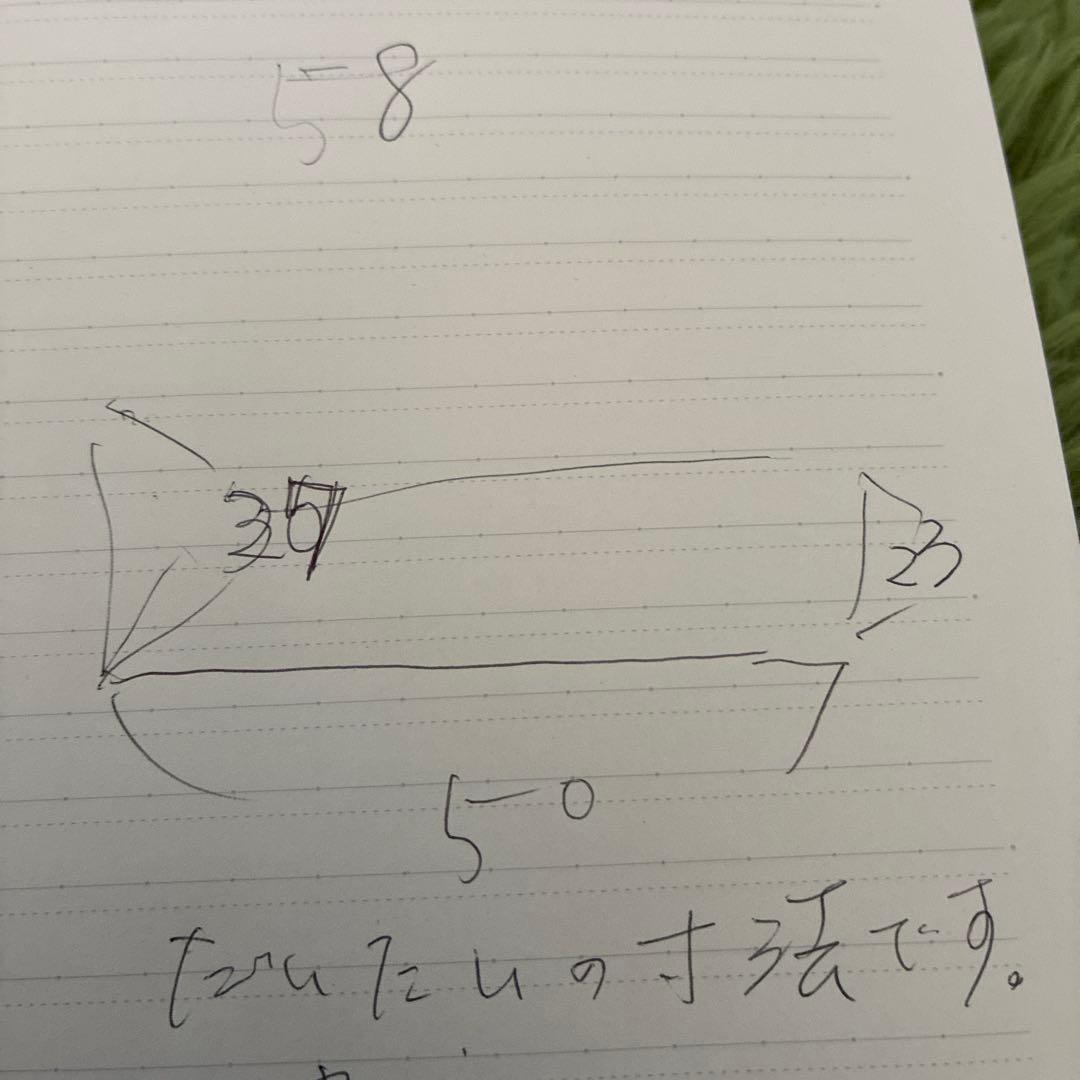 58
23
50
だいたいの寸法です。